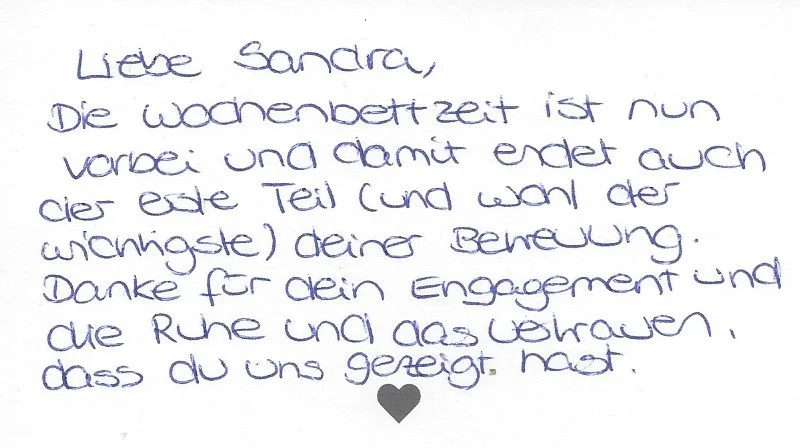 Liebe Sandra,
Die Wochenbettzeit ist nun
vorbei und damit endet auch
der erste Teil (und wohl der
wichtigste) deiner Betreuung.
Danke für dein Engagement und
die Ruhe und das Vertrauen,
dass du uns gezeigt hast.